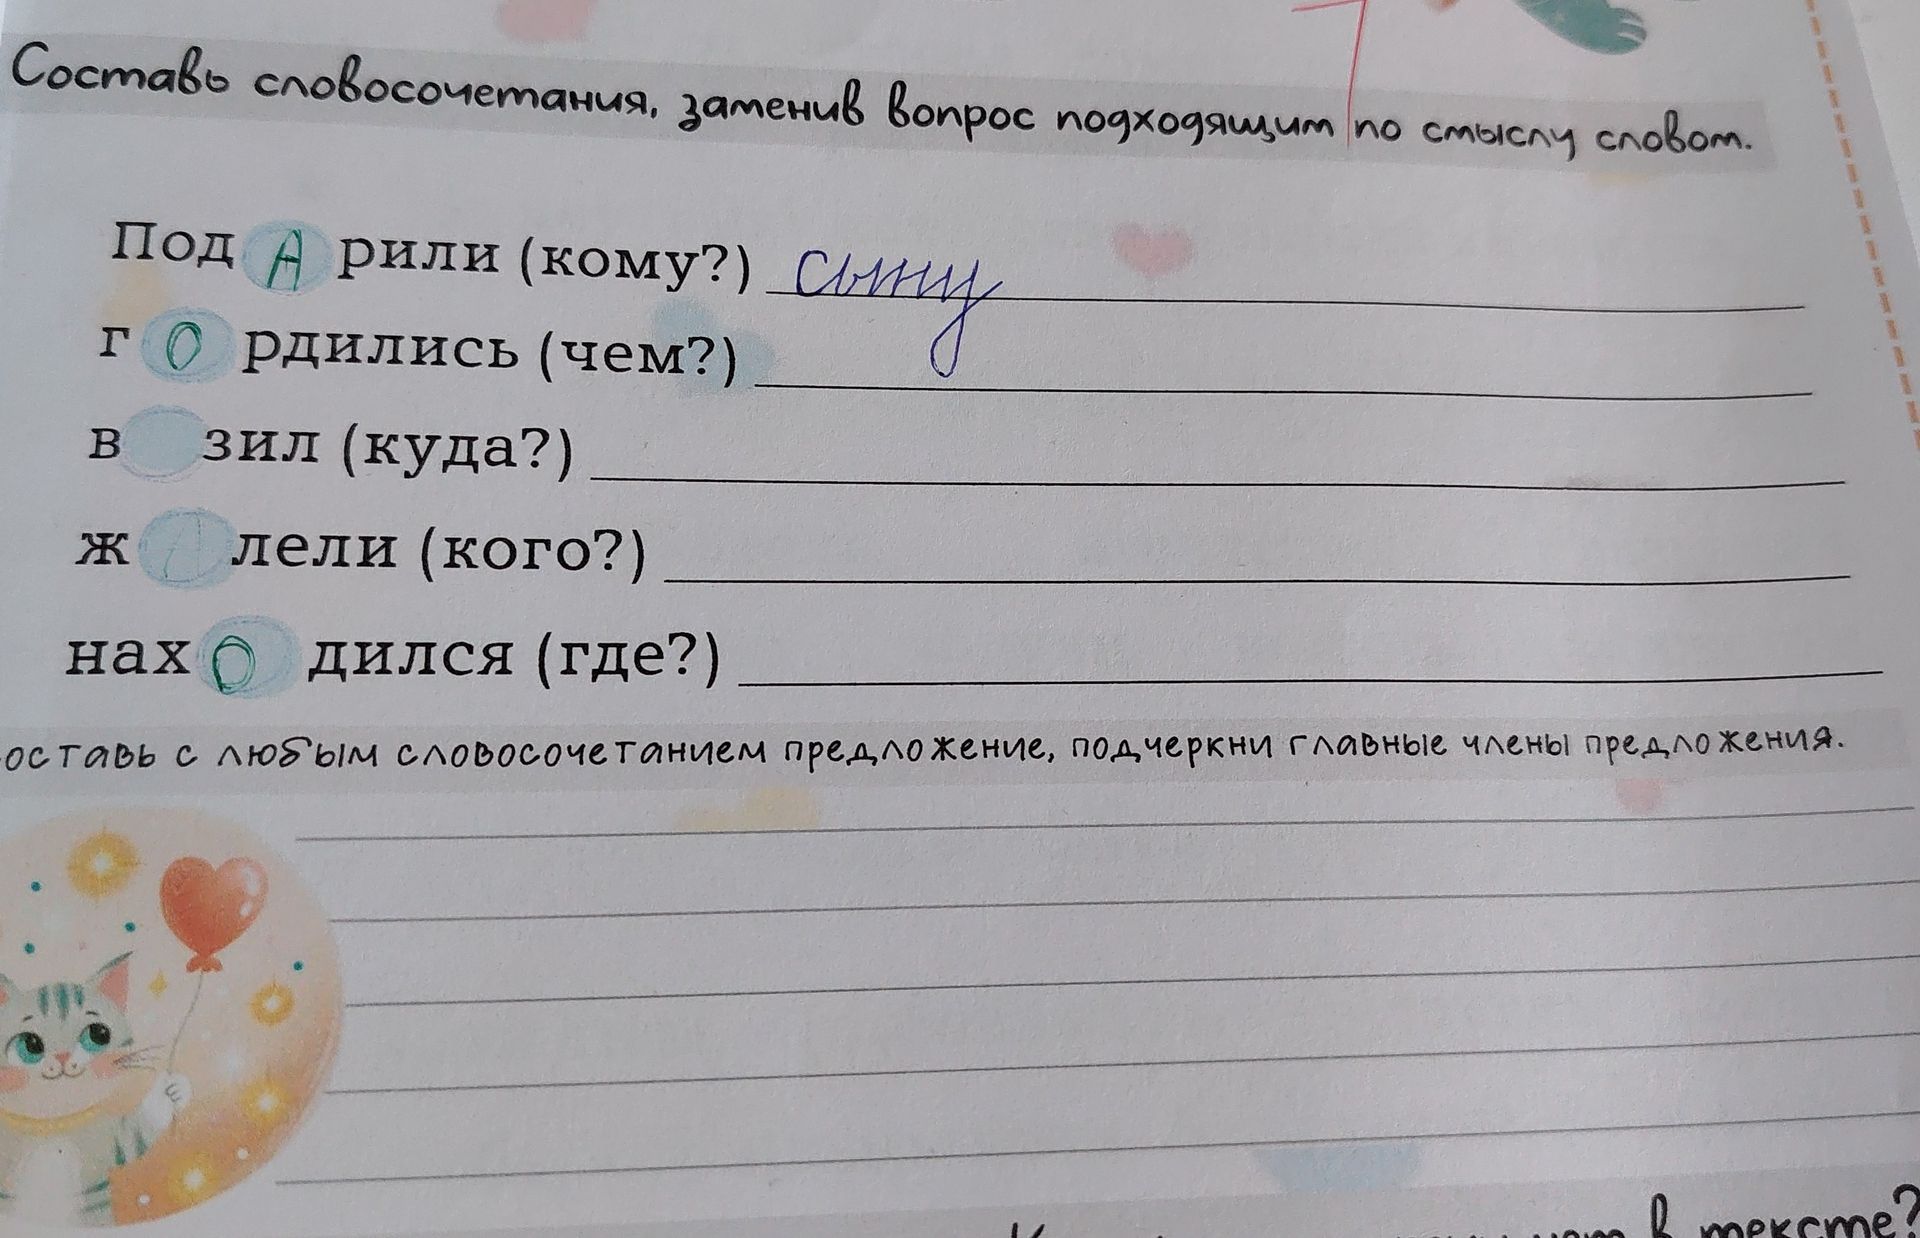 Составь словосочетания, заменив вопрос подходящим по смыслу словом.
Под А рили (кому?) сыну
г О рдились (чем?)
в зил (куда?)
ж А лели (кого?)
нах О дился (где?)
оставь с любым словосочетанием предложение, подчеркни главные члены предложения.
в тексте?